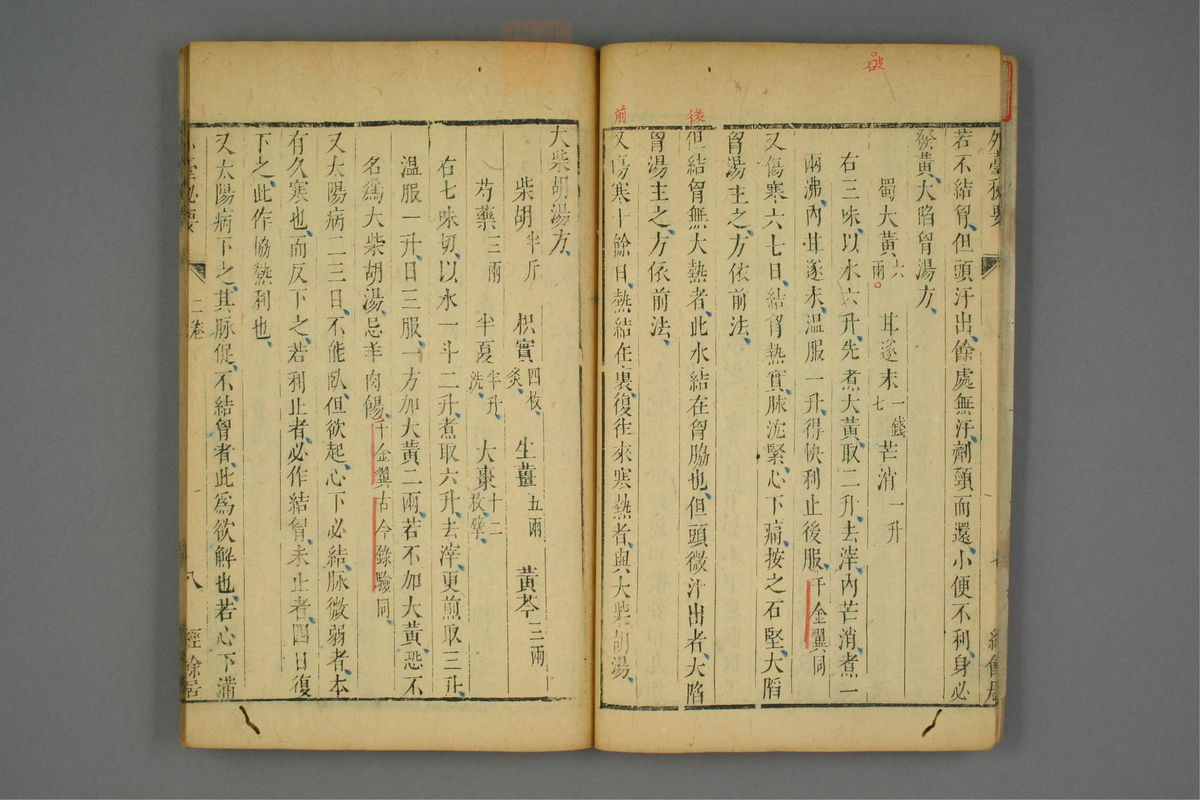 破
外臺秘要
若不結胷、但頭汗出、餘處無汗、劑頸而還、小便不利、身必
發黄、大陷胷湯方、
蜀大黄六兩 甘遂末一錢七 芒消一升
右三味、以水六升、先煮大黄、取二升、去滓、内芒消、煮一
兩沸、内甘遂末、温服一升、得快利止後服、千金翼同
又傷寒六七日、結胷熱實、脉沈緊、心下痛、按之石堅、大陷
胷湯主之、方依前法、
後
但結胷無大熱者、此水結在胷脇也、但頭微汗出者、大陷
胷湯主之、方依前法、
前
又傷寒十餘日、熱結在裏、復往來寒熱者、與大柴胡湯、
大柴胡湯方、
柴胡半斤 枳實四枚、炙、 生薑五兩 黄芩三兩
芍藥三兩 半夏半升洗、 大棗十二枚、擘、
右七味切、以水一斗二升、煮取六升、去滓、更煎取三升、
温服一升、日三服、一方加大黄二兩、若不加大黄、恐不
名爲大柴胡湯、忌羊肉餳、千金翼古今錄驗同、
又太陽病二三日、不能臥、但欲起、心下必結、脉微弱者、本
有久寒也、而反下之、若利止者、必作結胷、未止者、四日復
下之、此作協熱利也、
又太陽病下之、其脉促、不結胷者、此爲欲解也、若心下滿
二卷
八
經餘居